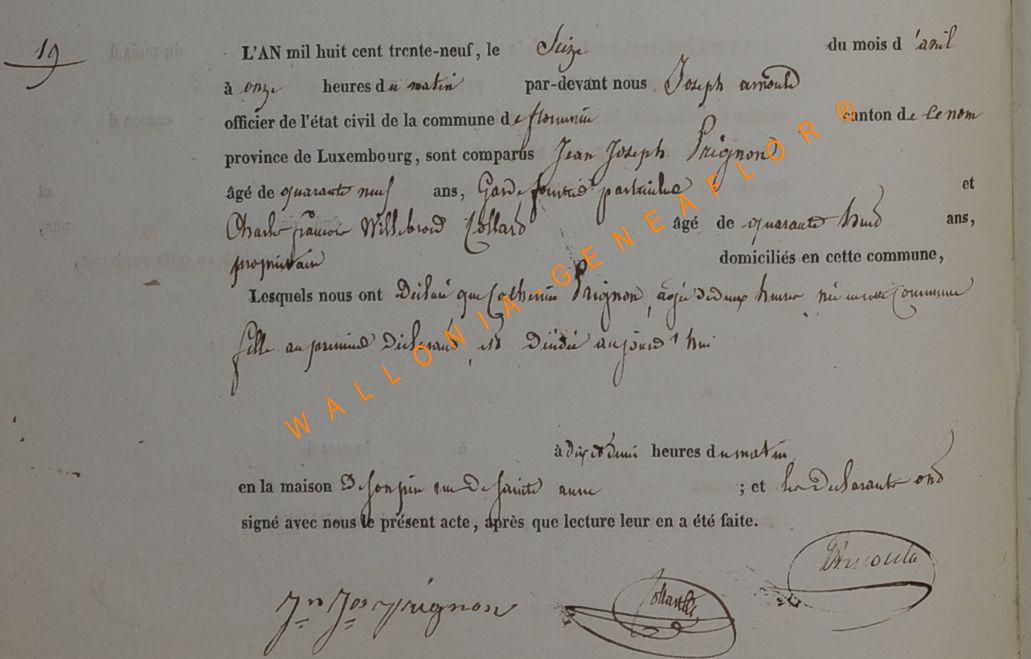 19
L'AN mil huit cent trente-neuf, le Seize du mois d'avril
à onze heures du matin par-devant nous Joseph arnould
officier de l'état civil de la commune de florenville canton de le nom
province de Luxembourg, sont comparus Jean Joseph Prignon
âgé de quarante neuf ans, Garde forestier particulier ; et
Charles françois Willebrord Collard âgé de quarante huit ans,
propriétaire domiciliés en cette commune,
Lesquels nous ont Déclaré que Catherine Prignon, agée de deux heures née en cette Commune
fille au premier Déclarant, est Décédée aujourd'hui
à dix et demi heures du matin
en la maison De son père rue De Sainte anne ; et les Déclarants ont
signé avec nous le présent acte, après que lecture leur en a été faite.
Jn Jos prignon Collard JArnould
WALLONIA-GENEAFLOR ®